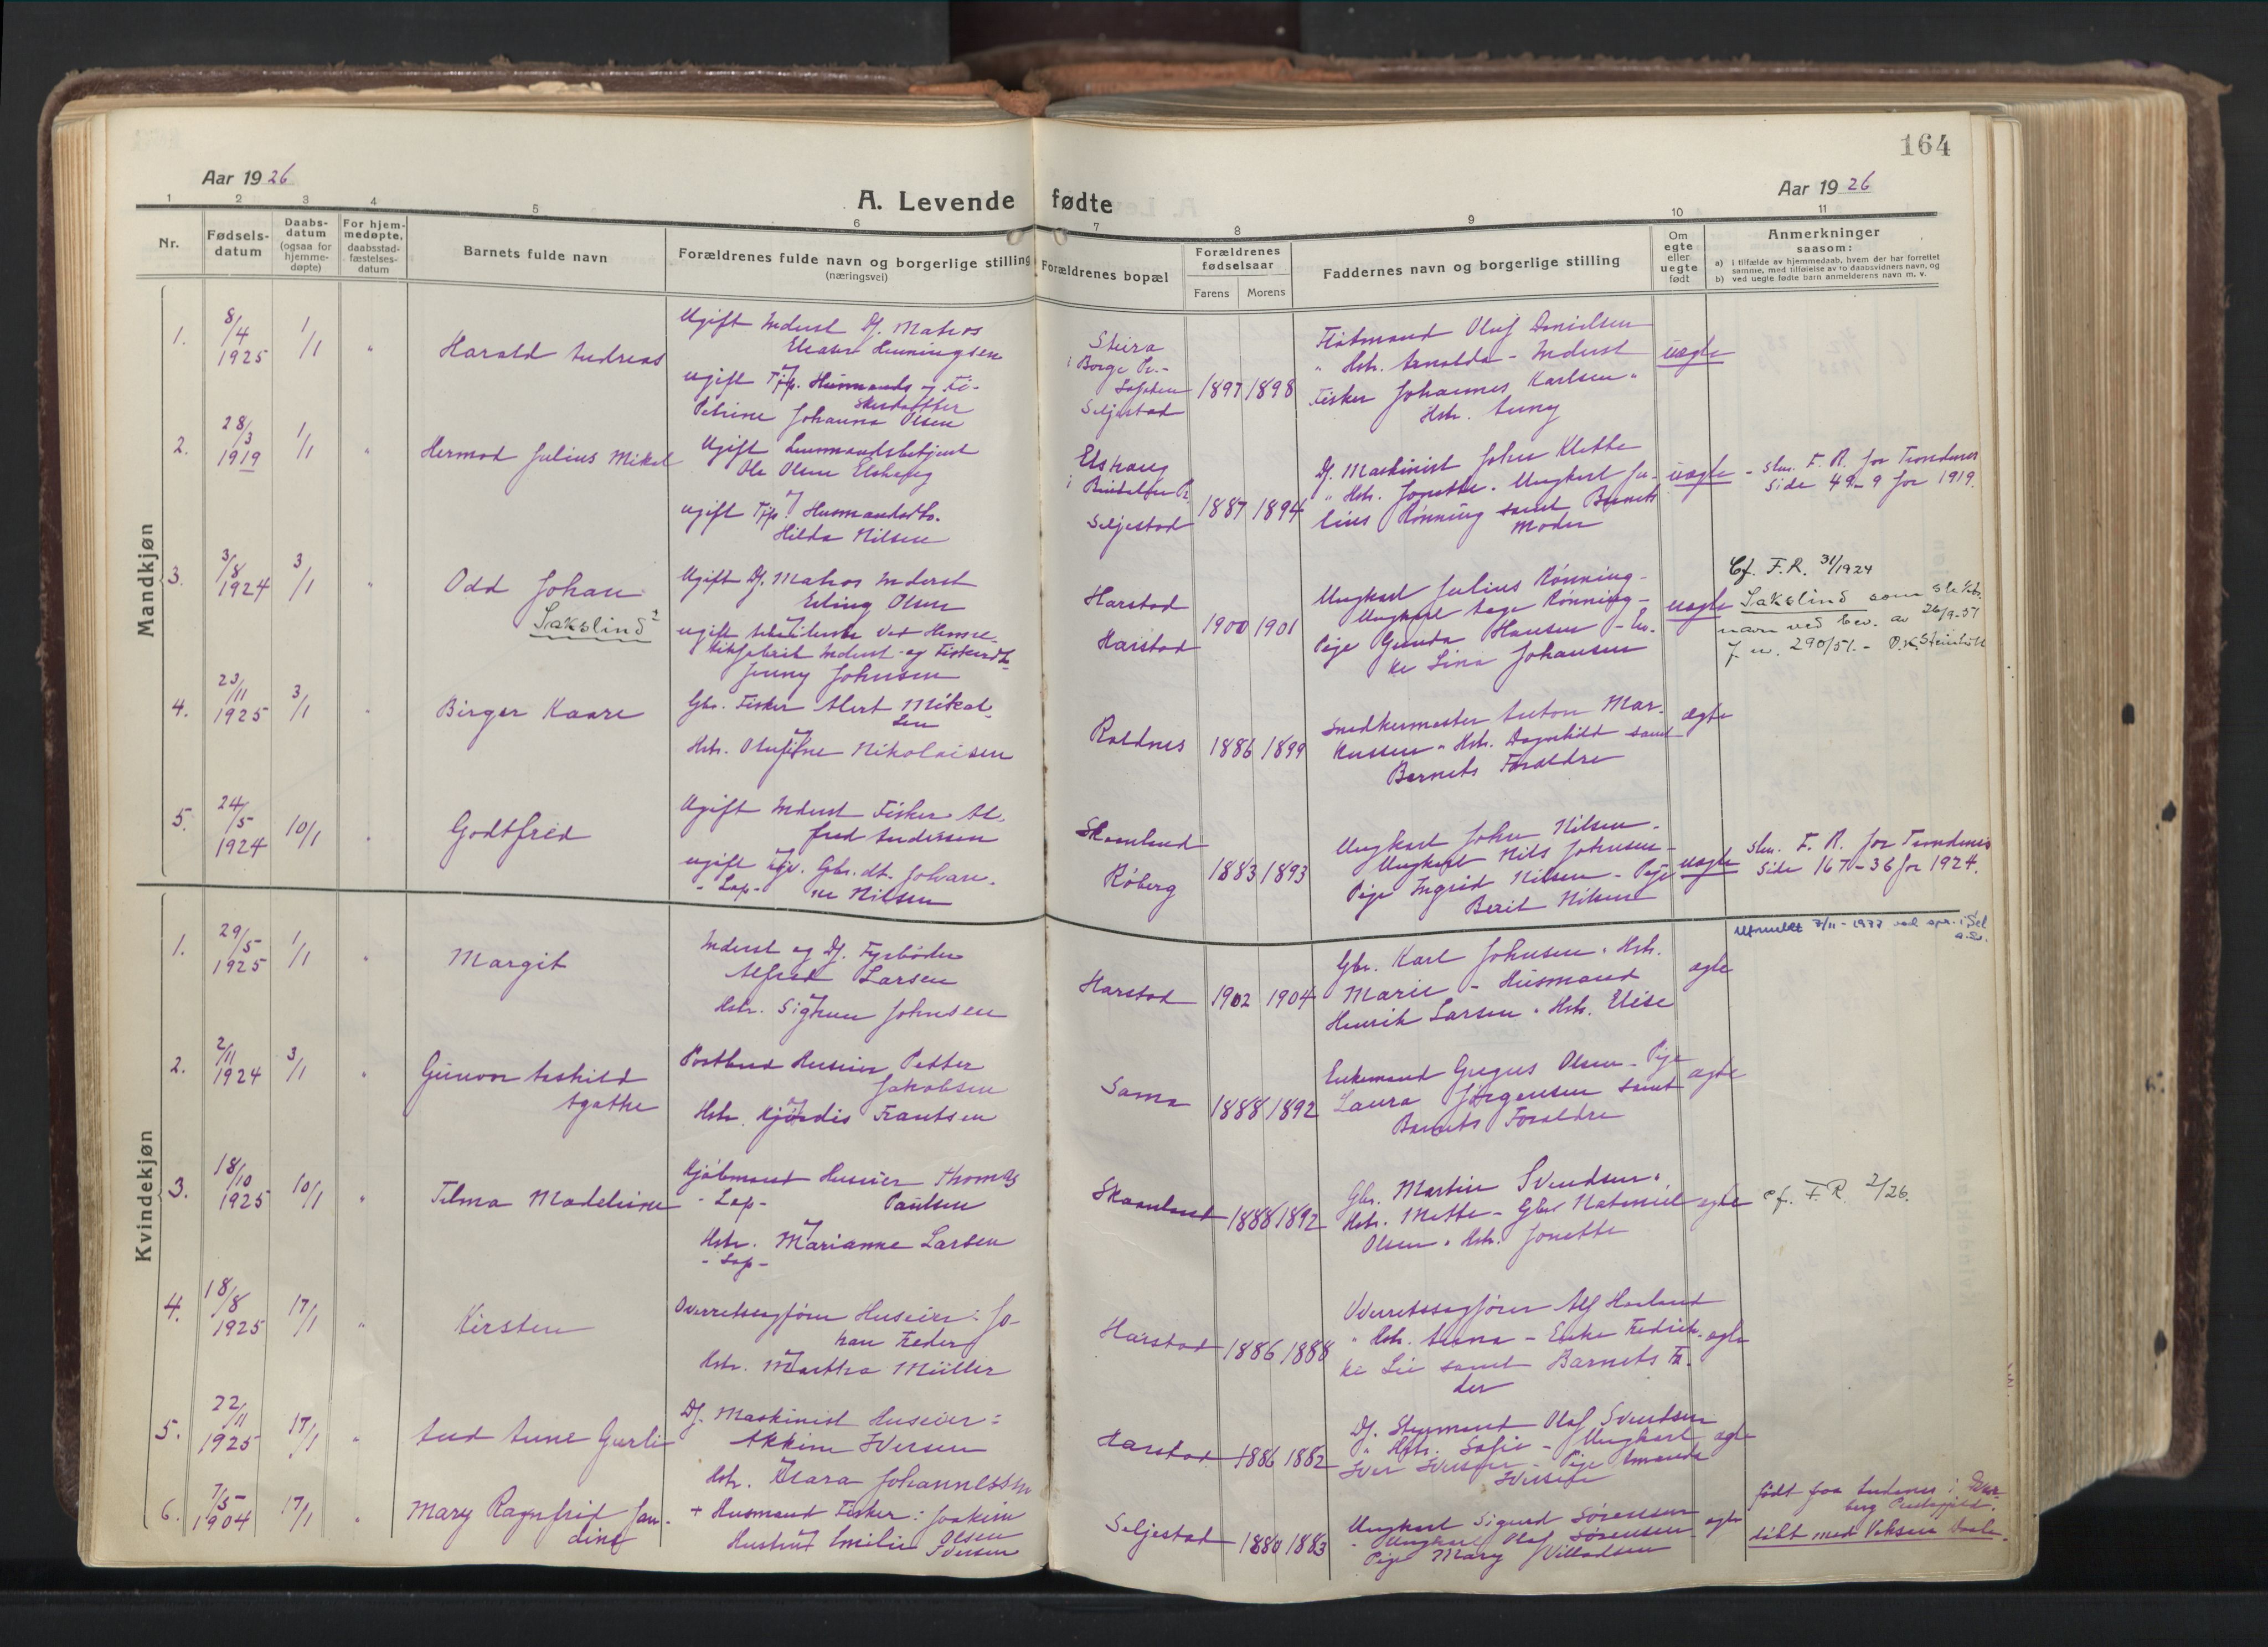 164
Aar 1926
A. Levende fødte
Aar 1926
1 2 3 4 5 6 7 8 9 10 11
Nr.
Fødsels-
datum
Daabs-
datum
(ogsaa for
hjemme-
døpte)
For hjem-
medøpte,
daabsstad-
fæstelses-
datum
Barnets fulde navn
Forældrenes fulde navn og borgerlige stilling
(næringsvei)
Forældrenes bopæl
Forældrenes
fødselsaar
Farens Morens
Faddernes navn og borgerlige stilling
Om
egte
eller
uegte
født
Anmerkninger
saasom:
a) i tilfælde av hjemmedaab, hvem der har forrettet
samme, med tilføielse av to daabsvidners navn, og
b) ved uegte fødte barn anmelderens navn m. v.
Mandkjøn
1. 8/4 1925 1/1 " Harald Andreas
Ugift Inderst Dj. Matros
Henningsen
ugift Tjp. Husmands og Fi-
skerdatter
Petrine Johanna Olsen
Steira
i Borge Pr.-
Lofoten
Seljestad
1897 1898
Oluf Danielsen
" Hstr. Arnolda - Inderst
Fisker Johannes Karlsen "
Hstr. Anny
uegte
2. 28/3 1919 1/1 " Hermod Julius Mikal
Ugift Lensmandsbetjent
Ole Olsen
ugift Tjp. Husmandsdtr.
Hilda Nilsen
i Bindalen Pr.
Seljestad
1887 1894
Dj. Maskinist Johan Klette
" Hstr. Jonette. Ungkarl Ju-
lius Rønning samt Barnets
Moder
uegte
- slm. F. R. for Trondenes
Side 49 - 9 for 1919.
3. 3/8 1924 3/1 " Odd Johan
Sakslind
Ugift Dj. Matros Inderst
Erling Olsen
ugift ved Herme-
tikfabrik Inderst og Fiskerdtr.
Jenny Johnsen
Harstad
Harstad
1900 1901
Ungkarl Julius Rønning -
Ungkarl Aage Rønning -
Pige Gunda Hansen - En-
ke Lina Johansen
uegte
Cf. F.R. 31/1924
Sakslind som slekts-
navn ved bev. av 26/9-51
J nr. 290/51. -
4. 23/11 1925 3/1 " Birger Kaare
Gbr. Fisker Albert Mikal-
sen
Hstr. Olufine Nikolaisen
Roldnes
1886 1899
Snedkermester Anton Mar-
kussen " Hstr. Dagmhild samt
Barnets Forældre
ægte
5. 24/5 1924 10/1 " Godtfred
Ugift Inderst Fisker Al-
fred Andersen
ugift Tjv. Gbr. dt. Johan-
- Lap - ne Nilsen
Skaanland
Røberg
1883 1893
Ungkarl John Nilsen -
Ungkarl Nils Johnsen -
Pige Ingrid Nilsen - Pige
Berit Nilsen
uegte
slm. F. R. for Trondenes
Side 167 - 36 for 1924.
Kvindekjøn
1. 29/5 1925 1/1 " Margit
Inderst og Dj. Fyrbøder
Alfred Larsen
Hstr. Sigrun Johnsen
Harstad
1902 1904
Gbr. Karl Johnsen " Hstr.
Marie - Husmand
Henrik Larsen " Hstr. Elise
ægte
Utmeldt 7/11 - 1977
2. 2/11 1924 3/1 " Gunvor Aashild
Agathe
Postbud Huseier Petter
Jakobsen
Hstr. Hjørdis Frantsen
Sama
1888 1892
Enkemand Gregus Olsen - Pige
Laura Jørgensen samt
Barnets Forældre
ægte
3. 18/10 1925 10/1 " Telma Madeleine
Kjøbmand Huseier Thomas
- Lap - Paulsen
Hstr. Marianne Larsen
- Lap -
Skaanland
1888 1892
Gbr. Martin Svendsen "
Hstr. Mette - Gbr. Nataniel
Olsen " Hstr. Jonette
ægte
cf. F. R. 2/26.
4. 18/8 1925 17/1 " Kirsten
Overretssagfører Huseier: Jo-
han Feder
Hstr. Martha Müller
Harstad
1886 1888
Overretssagfører Alf Haaland
" Hstr. Anna - Enke Fredrik-
ke Lie samt Barnets Fa-
der
ægte
5. 22/11 1925 17/1 " Aud Anne Gurli
Dj. Maskinist Huseier:
Iversen
Hstr. Klara Johannessen
Harstad
1886 1882
Dj. Styrmand Olaf Svendsen
" Hstr. Sofie - Ungkarl
Iver Iversen - Pige Amanda
Iversen
ægte
6. 7/5 1904 17/1 " Mary Ragnfrid Jan-
dine
+ Husmand Fisker: Joakim
Olsen
Hustru Emilie Iversen
Seljestad
1880 1883
Ungkarl Sigurd Sørensen
- Ungkarl Olaf Sørensen
Pige Mary Villadsen
ægte
født paa i
berg Prestegjeld.
døbt med Voksen Daab.